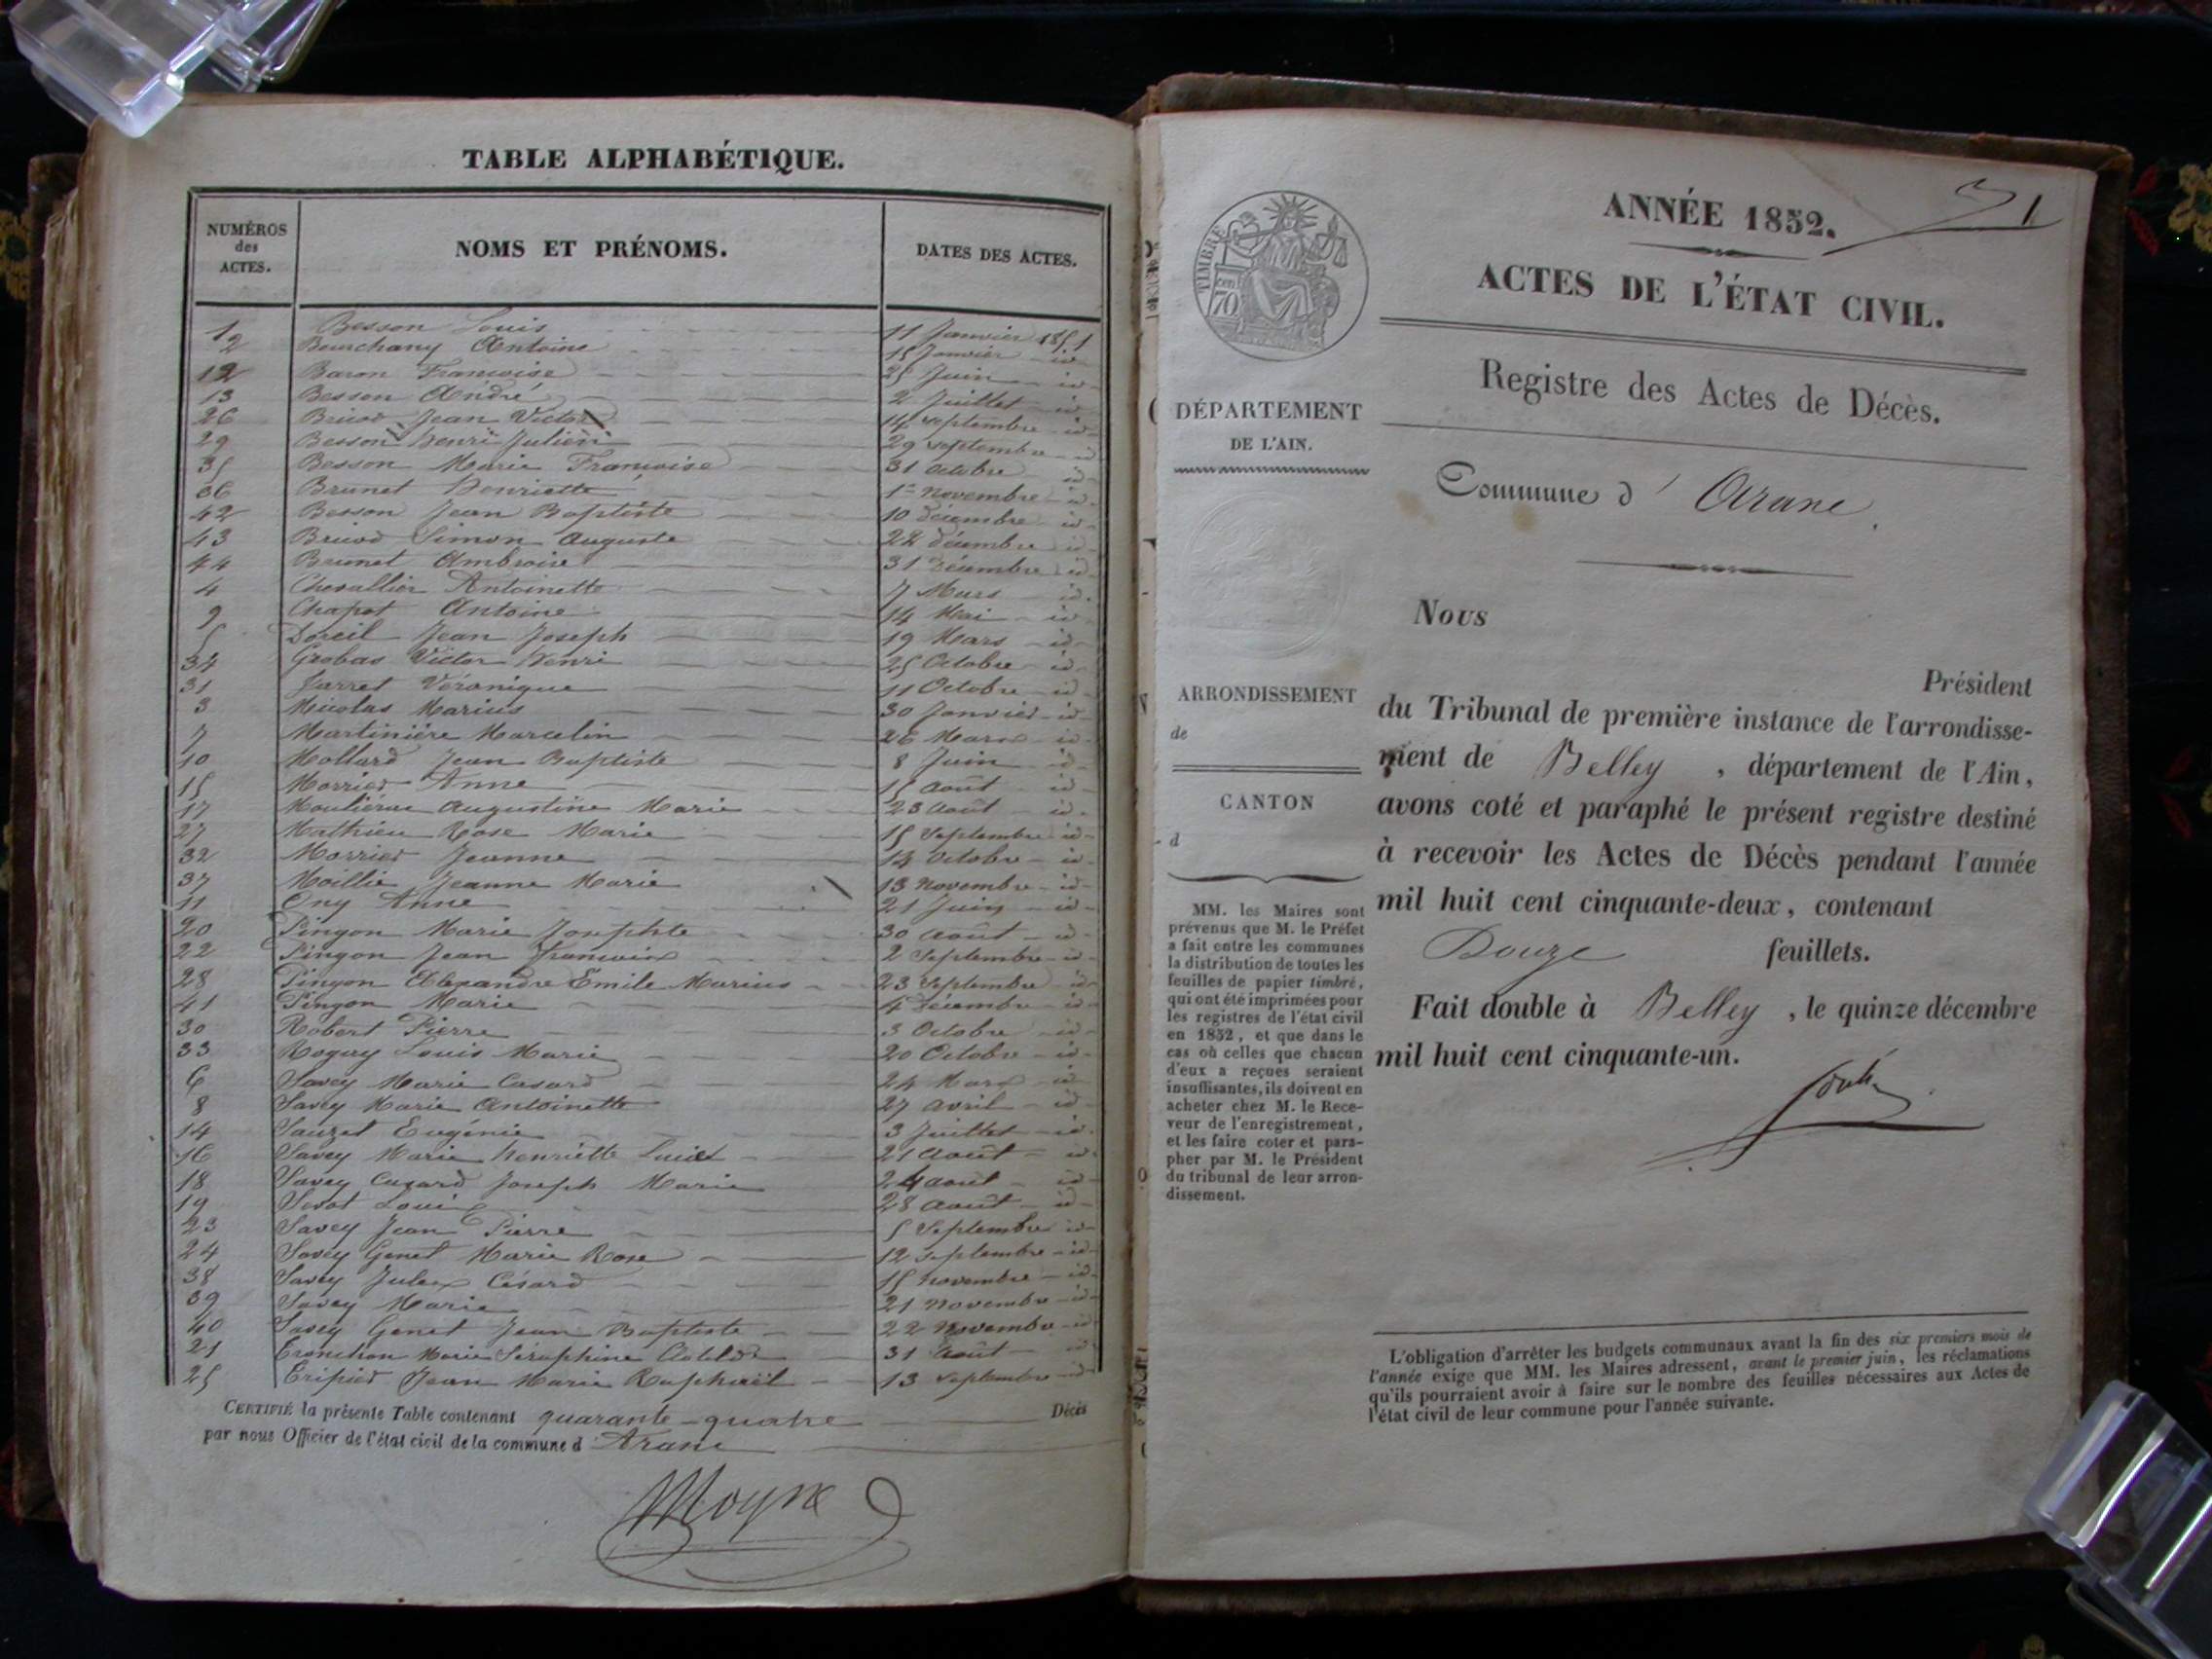 TABLE ALPHABÉTIQUE.
NUMÉROS
des
ACTES.
NOMS ET PRÉNOMS.
DATES DES ACTES.
1 Besson Louis 11 Janvier 1851
2 Bourchany Antoine 15 Janvier id
12 Baron Françoise 25 Juin id
13 Besson André 2 Juillet id
26 Briod Jean Victor 14 septembre id
29 Besson Henri Julien 29 septembre id
35 Besson Marie Françoise 31 octobre id
36 Brunet Henriette 1er novembre id
42 Besson Jean Baptiste 10 décembre id
43 Briod Simon Auguste 22 décembre id
44 Brunet Ambroise 31 Décembre id
4 Chevallier Antoinette 7 Mars id
9 Chapot Antoine 14 Mai id
5 Doreil Jean Joseph 19 Mars id
34 Grobas Victor Henri 25 Octobre id
31 Jarret Véronique 11 Octobre id
3 Micolas Marius 30 Janvier id
7 Martinière Marcelin 26 Mars id
10 Mollard Jean Baptiste 8 Juin id
15 Morrier Anne 15 août id
17 Augustine Marie 23 août id
27 Mathieu Rose Marie 15 Septembre id
32 Morrier Jeanne 14 Octobre id
37 Moillie Jeanne Marie 13 novembre id
11 Ony Anne 21 Juin id
20 Pingon Marie Josephte 30 août id
22 Pingon Jean François 2 Septembre id
28 Pingon Alexandre Emile Marius 23 Septembre id
41 Pingon Marie 4 Décembre id
30 Robert Pierre 3 Octobre id
33 Roguy Louis Marie 20 Octobre id
6 Savey Marie Casard 24 Mars id
8 Savey Marie Antoinette 27 avril id
14 Sauzet Eugénie 3 Juillet id
16 Savey Marie henriette 21 août id
18 Savey Cazard Joseph Marie 24 août id
19 Louis 28 août id
23 Savey Jean Pierre 5 Septembre id
24 Savey Genet Marie Rose 12 septembre id
38 Savey Jules Césard 15 novembre id
39 Savey Marie 21 novembre id
40 Savey Genet Jean Baptiste 22 Novembre id
21 Marie Séraphine Clotilde 31 août id
25 Jean Marie Raphaël 13 septembre id
CERTIFIÉ la présente Table contenant quarante-quatre Décès
par nous Officier de l'état civil de la commune d'Aranc
Moyne
1
ANNÉE 1852.
ACTES DE L'ÉTAT CIVIL.
Registre des Actes de Décès.
Commune d' Aranc.
TIMBRE
cen
70
DÉPARTEMENT
DE L'AIN.
ARRONDISSEMENT
de
CANTON
d
MM. les Maires sont
prévenus que M. le Préfet
a fait entre les communes
la distribution de toutes les
feuilles de papier timbré,
qui ont été imprimées pour
les registres de l'état civil
en 1852, et que dans le
cas où celles que chacun
d'eux a reçues seraient
insuffisantes, ils doivent en
acheter chez M. le Rece-
veur de l'enregistrement,
et les faire coter et para-
pher par M. le Président
du tribunal de leur arron-
dissement.
Nous
Président
du Tribunal de première instance de l'arrondisse-
ment de Belley, département de l'Ain,
avons coté et paraphé le présent registre destiné
à recevoir les Actes de Décès pendant l'année
mil huit cent cinquante-deux, contenant
Douze feuillets.
Fait double à Belley, le quinze décembre
mil huit cent cinquante-un.
L'obligation d'arrêter les budgets communaux avant la fin des six premiers mois de
l'année exige que MM. les Maires adressent, avant le premier juin, les réclamations
qu'ils pourraient avoir à faire sur le nombre des feuilles nécessaires aux Actes de
l'état civil de leur commune pour l'année suivante.